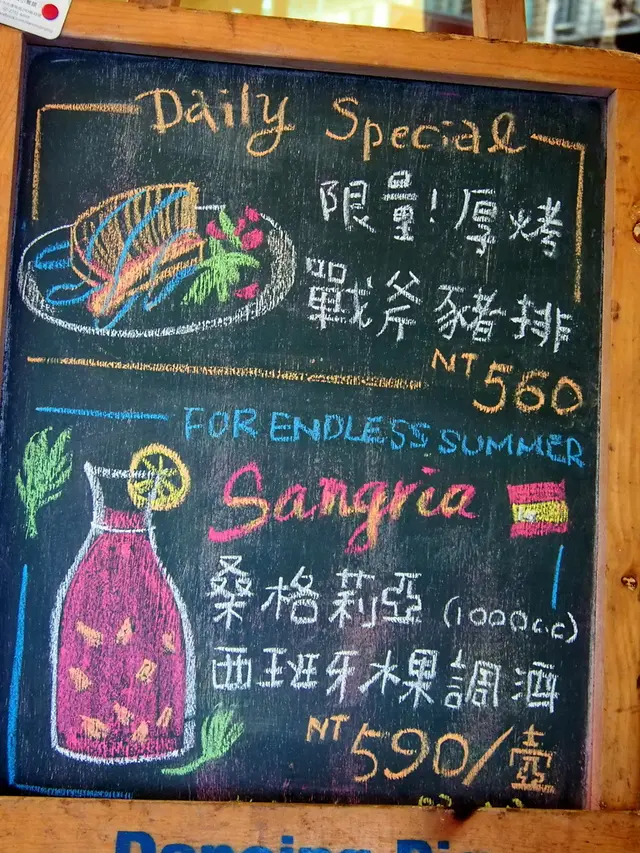 Daily Special
限量!厚烤
戰斧豬排
NT 560
FOR ENDLESS SUMMER
Sangria
桑格莉亞 (1000cc)
西班牙水果調酒
NT 590/壺